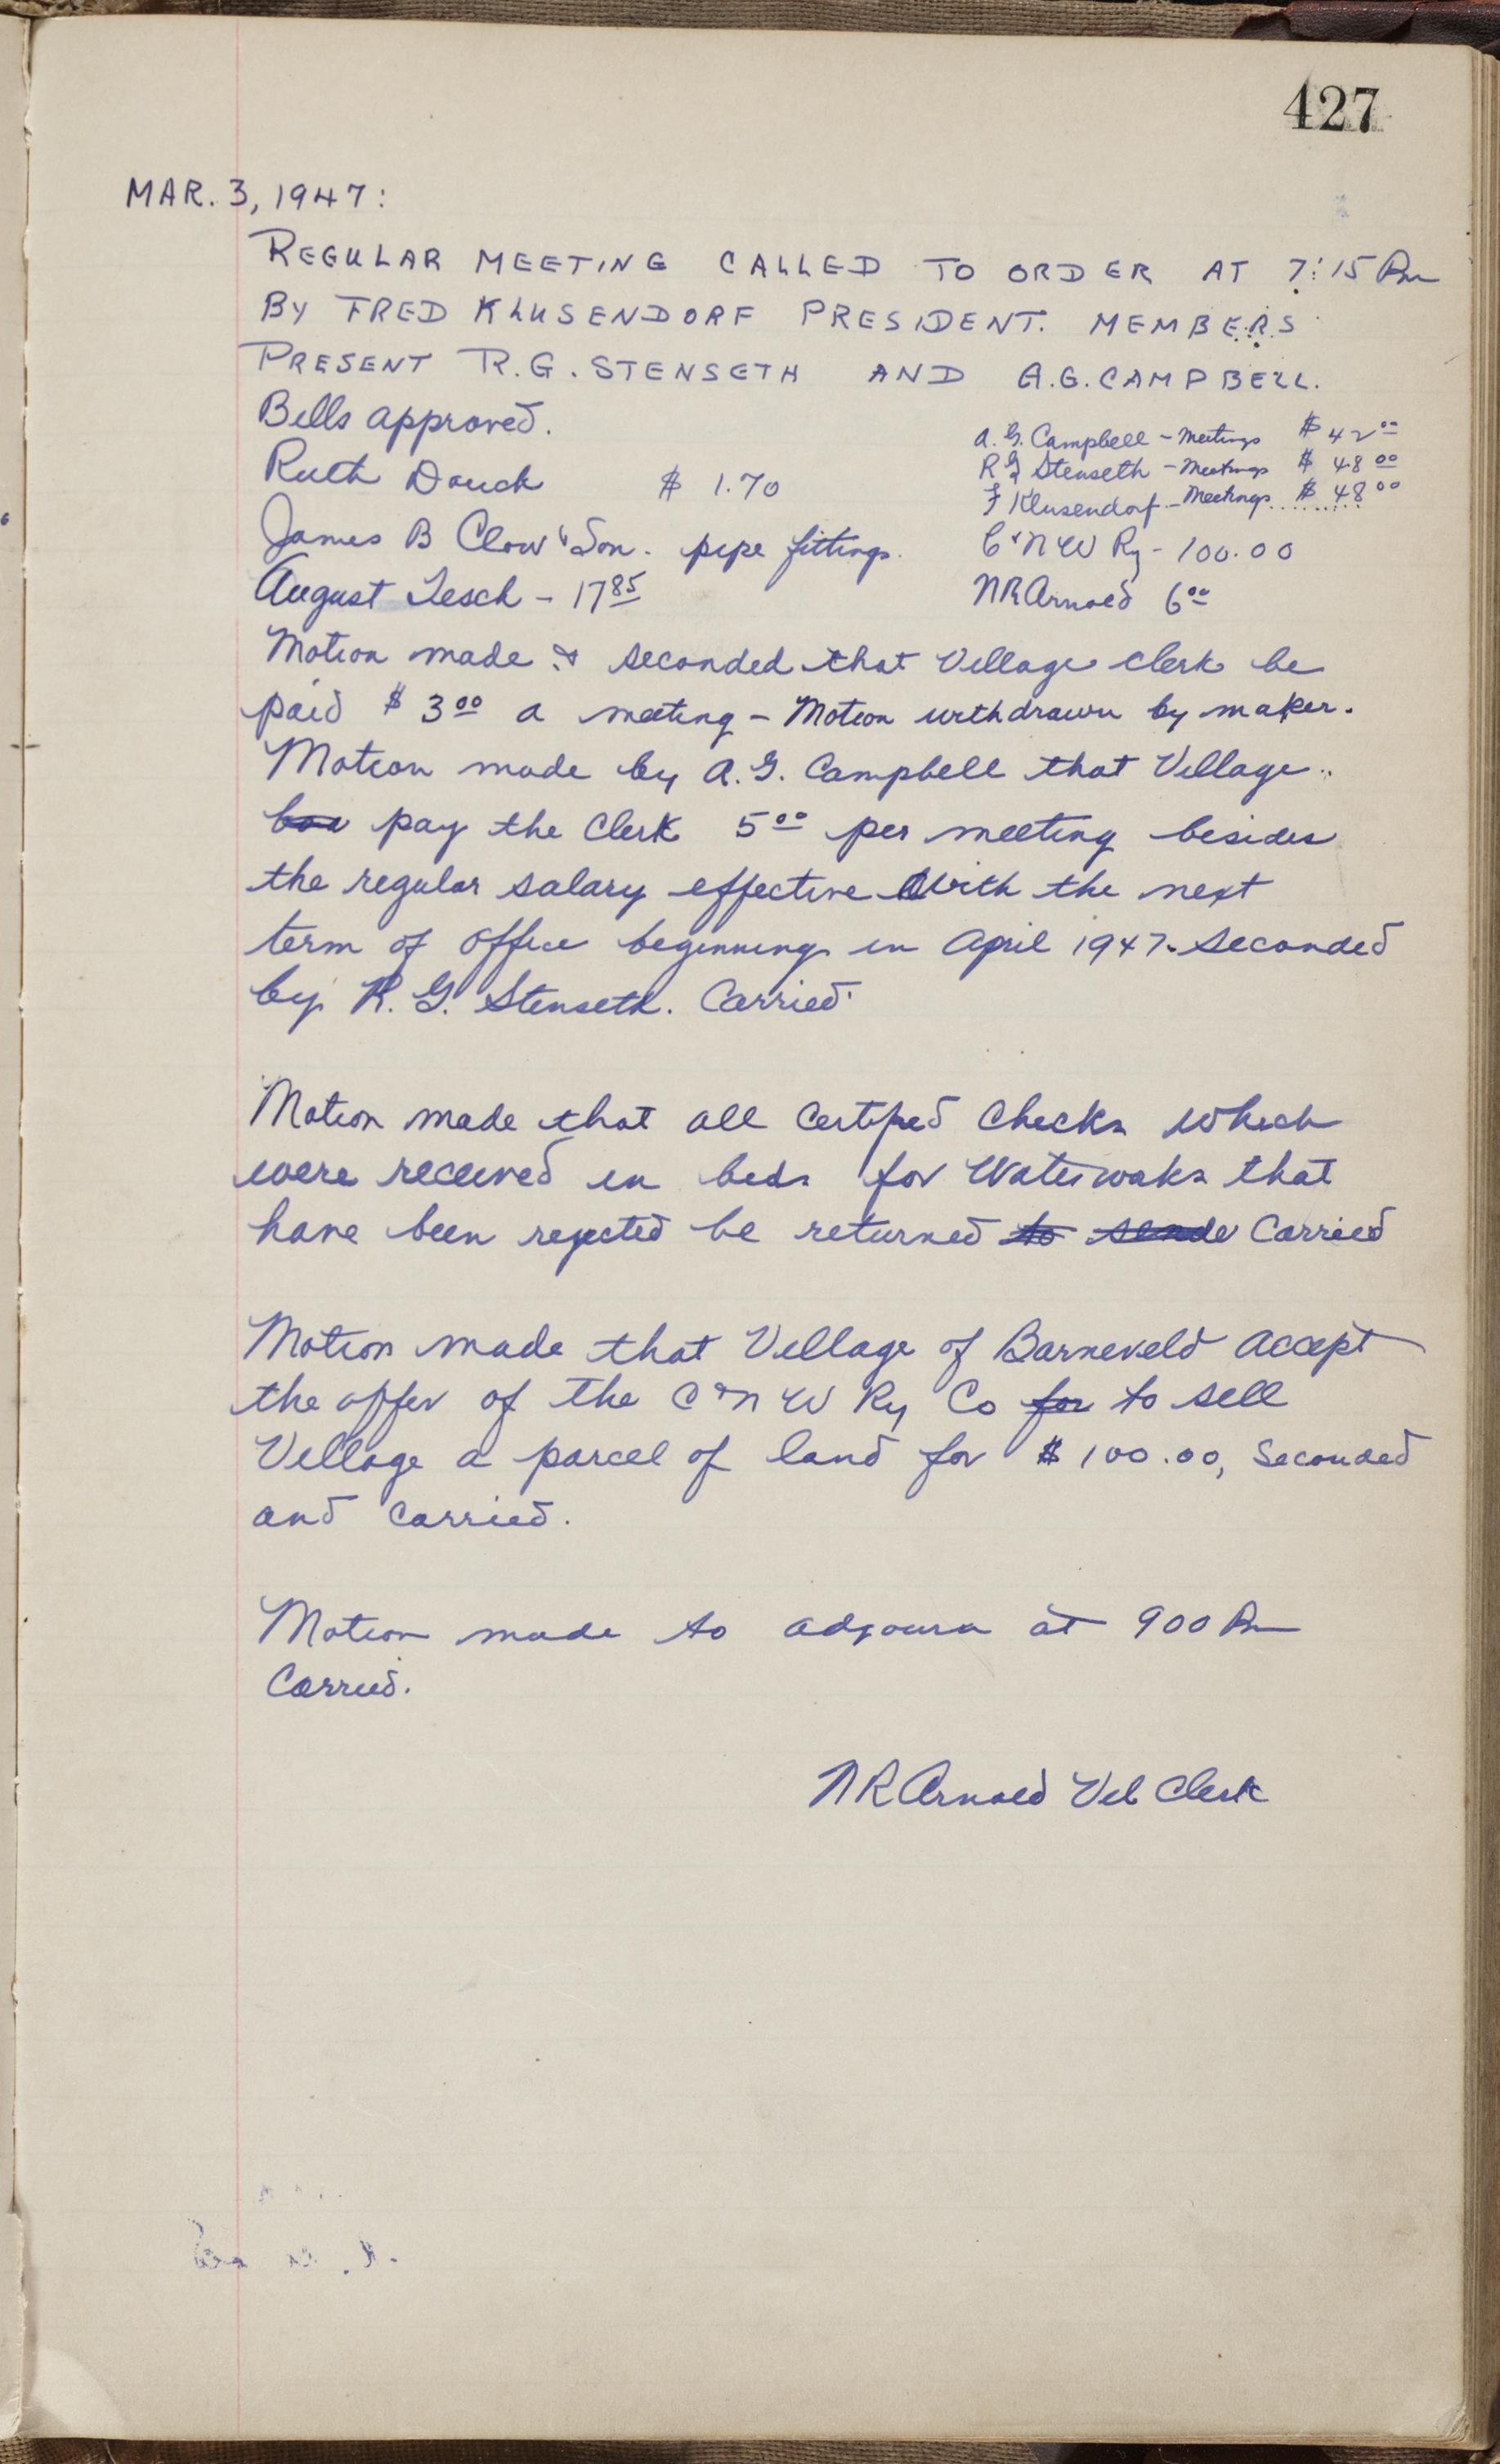 427
MAR. 3, 1947:
REGULAR MEETING CALLED TO ORDER AT 7:15 Pm
BY FRED KLUSENDORF PRESIDENT. MEMBERS
PRESENT R.G. STENSETH AND A.G. CAMPBELL.
Bills approved.
A. G. Campbell - Meetings $42.00
Ruth Douck $ 1.70
R G Stenseth - Meetings $ 48.00
F Klusendorf - Meetings $ 48.00
James B Clow & Son. pipe fittings.
C & N W Ry - 100.00
August Tesch - 17.85
NR Arnold 6.00
Motion made & seconded that Village clerk be
paid $ 3.00 a meeting - Motion withdrawn by maker.
Motion made by A. G. Campbell that Village
pay the Clerk 5.00 per meeting besides
the regular salary effective with the next
term of office beginning in April 1947. Seconded
by R. G. Stenseth. Carried.
Motion made that all Certified Checks which
were received in bids for Waterworks that
have been rejected be returned to Carried
Motion made that Village of Barneveld accept
the offer of the C & N W Ry Co for to sell
Village a parcel of land for $ 100.00, Seconded
and carried.
Motion made to adjourn at 900 Pm
Carried.
NR Arnold Vil Clerk